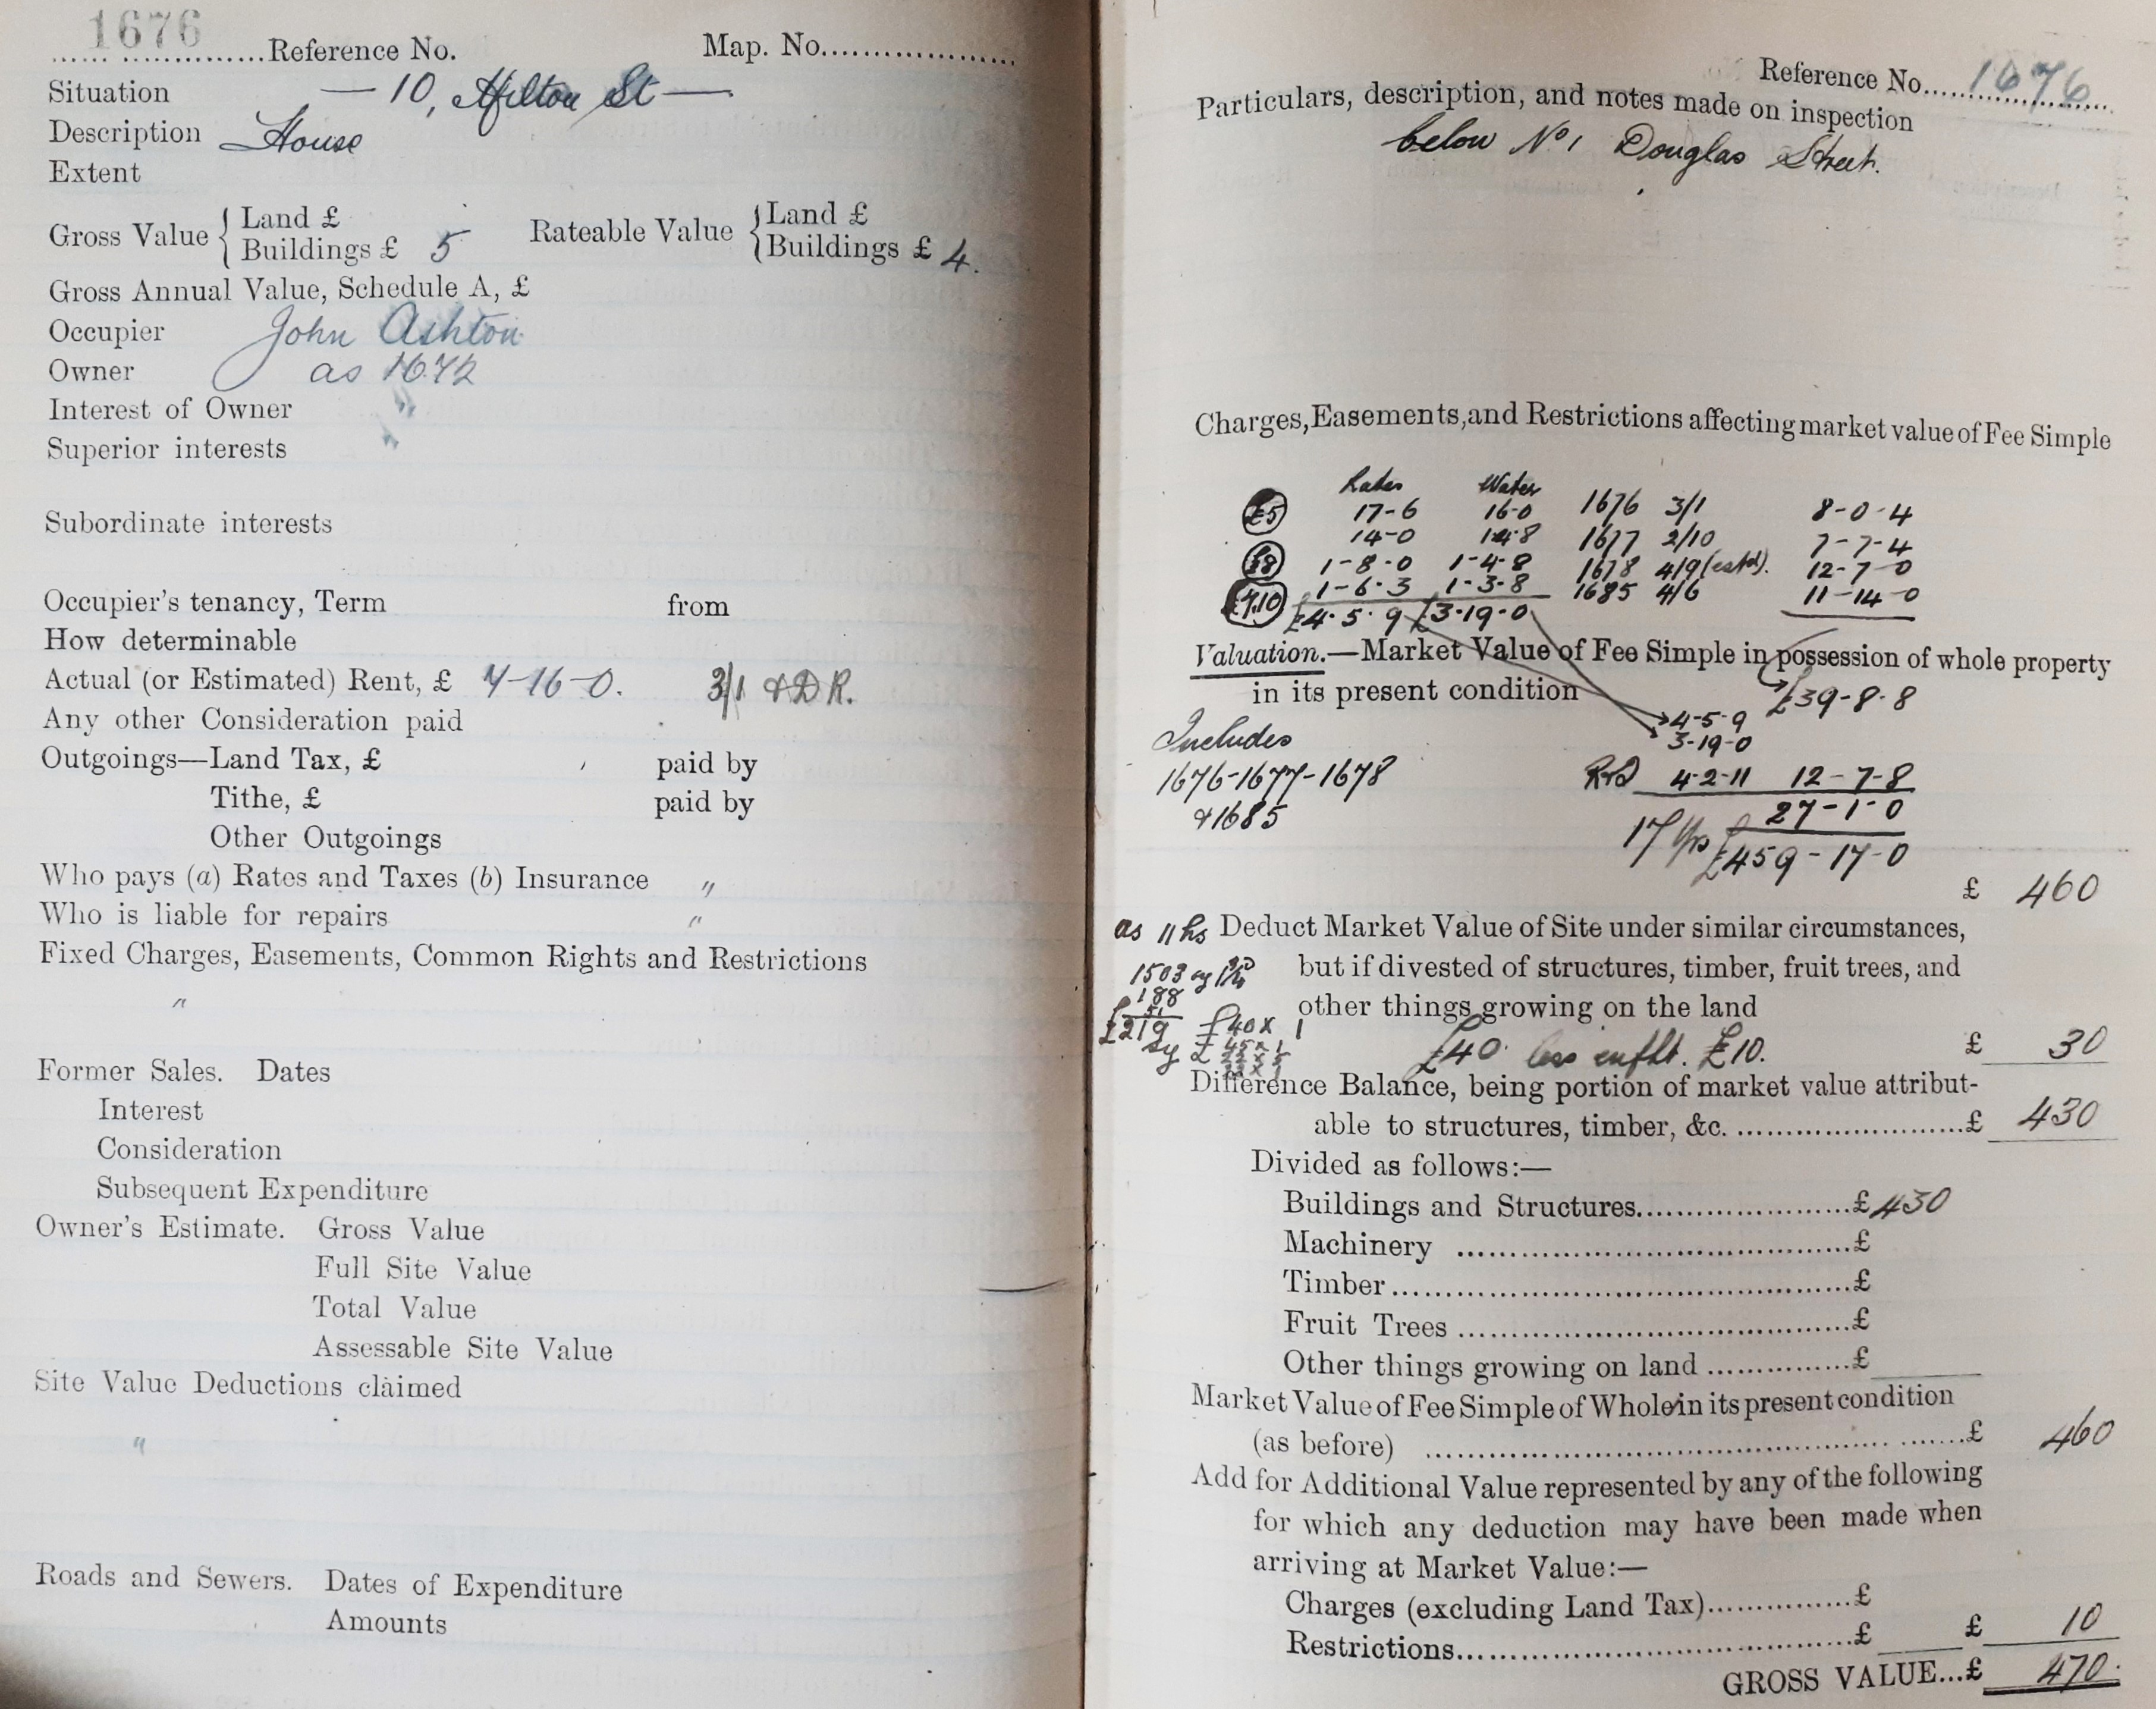 1676 Reference No. Map. No.
Situation — 10, Hilton St —
Description House
Extent
Gross Value { Land £ Rateable Value { Land £
Buildings £ 5 Buildings £ 4.
Gross Annual Value, Schedule A, £
Occupier John Ashton
Owner as 1672
Interest of Owner "
Superior interests "
Subordinate interests
Occupier's tenancy, Term from
How determinable
Actual (or Estimated) Rent, £ 7-16-0. 3/1 & D R.
Any other Consideration paid
Outgoings—Land Tax, £ paid by
Tithe, £ paid by
Other Outgoings
Who pays (a) Rates and Taxes (b) Insurance "
Who is liable for repairs "
Fixed Charges, Easements, Common Rights and Restrictions
"
Former Sales. Dates
Interest
Consideration
Subsequent Expenditure
Owner's Estimate. Gross Value
Full Site Value
Total Value
Assessable Site Value
Site Value Deductions claimed
"
Roads and Sewers. Dates of Expenditure
Amounts
Reference No. 1676
Particulars, description, and notes made on inspection
below No 1 Douglas Street.
Charges, Easements, and Restrictions affecting market value of Fee Simple
Rates Water
£5 17-6 16-0 1676 3/1 8-0-4
14-0 14-8 1677 2/10 7-7-4
£8 1-8-0 1-4-8 1678 4/9 (estd). 12-7-0
£7.10 1-6-3 1-3-8 1685 4/6 11-14-0
£4.5.9 £3-19-0
Valuation.—Market Value of Fee Simple in possession of whole property
in its present condition £39-8-8
4-5-9
Includes 3-19-0
1676-1677-1678 4-2-11 12-7-8
& 1685 27-1-0
17 Yrs £459-17-0
£ 460
as 11 hs Deduct Market Value of Site under similar circumstances,
1503 but if divested of structures, timber, fruit trees, and
188 other things growing on the land
£219 £40 x 1
£40 less £10. £ 30
Difference Balance, being portion of market value attribut-
able to structures, timber, &c. £ 430
Divided as follows:—
Buildings and Structures £ 430
Machinery £
Timber £
Fruit Trees £
Other things growing on land £
Market Value of Fee Simple of Whole in its present condition
(as before) £ 460
Add for Additional Value represented by any of the following
for which any deduction may have been made when
arriving at Market Value:—
Charges (excluding Land Tax) £
Restrictions £ £ 10
GROSS VALUE...£ 470.